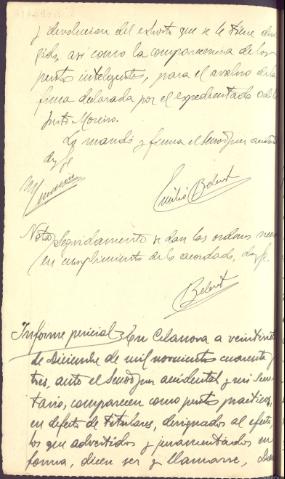 y devolución del exhorto que se le tiene diri-
gido, así como la comparecencia de los
peritos inteligentes, para el avaluo de la
finca declarada por el expedientado
Justo Moreiro.
Lo mandó y firma el Señor Juez
doy fe
Emilio Bebert
Nota Seguidamente se dan las ordenes
en cumplimiento de lo acordado, doy fe.
Bebert
Informe pericial = En Celanova a veintisiete
de Diciembre de mil novecientos cuarenta y
tres, ante el Señor Juez accidental y mi Secre-
tario, comparecen como peritos practicos,
en defecto de titulares, designados al efecto,
los que advertidos y juramentados, en
forma, dicen ser y llamarse,